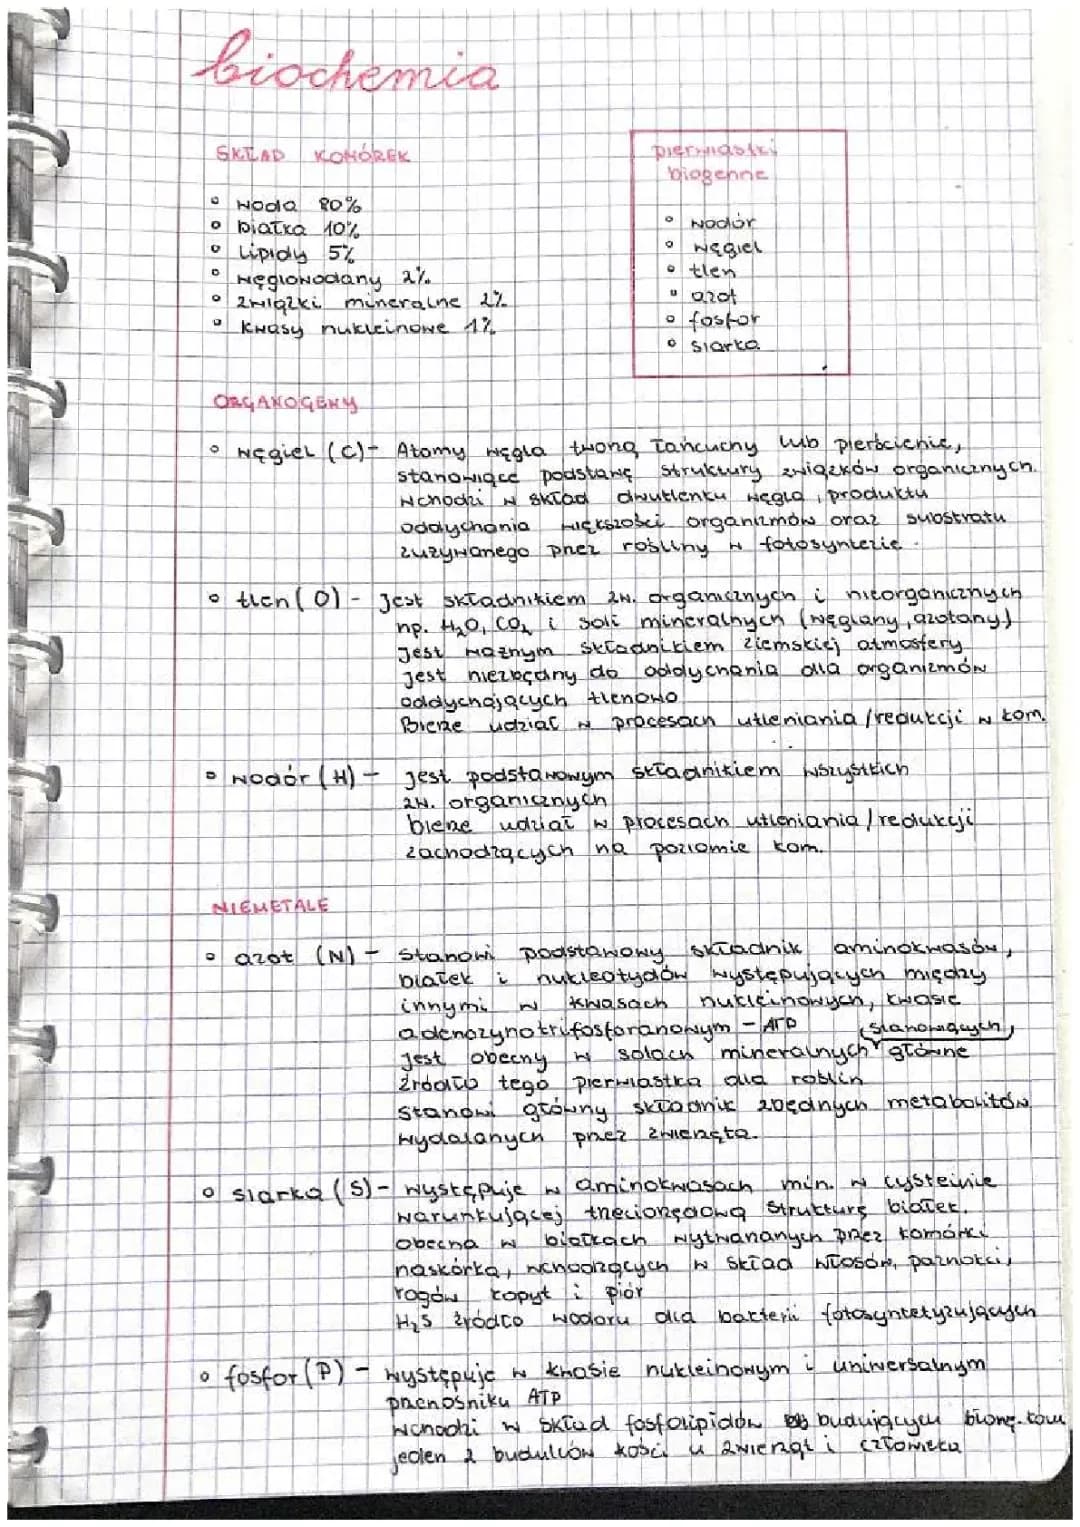 biochemia
SKŁAD KOMÓREK
woda 80%
białka 10%
Lipidy 5%
węglowodany 2%
związki mineralne 2%
kwasy nukleinowe 1%
pierwiastki
biogenne
wodór
węgiel
tlen
azot
fosfor
siarka
ORGANOGENY
węgiel (C) - Atomy węgla tworzą łańcuchy lub pierścienie,
stanowiące podstawę struktury związków organicznych.
wchodzi w skład dwutlenku węgla, produktu
oddychania większości organizmów oraz substratu
zużywanego przez rośliny w fotosyntezie.
tlen (O) - Jest składnikiem zw. organicznych i nieorganicznych
np. H₂O, CO₂ i soli mineralnych (węglany, azotany)
Jest ważnym składnikiem ziemskiej atmosfery
Jest niezbędny do oddychania dla organizmów
oddychających tlenowo
Bierze udział w procesach utleniania/redukcji w kom.
wodór (H) - jest podstawowym składnikiem wszystkich
zw. organicznych
bierze udział w procesach utleniania/redukcji
zachodzących na poziomie kom.
NIEMETALE
azot (N) - Stanowi podstawowy składnik aminokwasów,
białek i nukleotydów występujących między
innymi w kwasach nukleinowych, kwasie
adenozynotrifosforanowym - ATP
Jest obecny w solach mineralnych stanowiących główne
źródło tego pierwiastka dla roślin
Stanowi główny składnik zbędnych metabolitów
wydalanych przez zwierzęta.
siarka (S) - występuje w aminokwasach min. w cysteinie
warunkującej trzeciorzędową strukturę białek.
obecna w białkach wytwarzanych przez komórki
naskórka, wchodzących w skład włosów, paznokci,
rogów kopyt i piór
H₂S źródło wodoru dla bakterii fotosyntetyzujących
fosfor (P) - występuje w kwasie nukleinowym i uniwersalnym
przenośniku ATP
wchodzi w skład fosfolipidów budujących błonę kom
jeden z budulców kości u zwierząt i człowieka